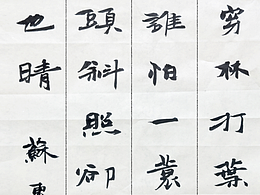 穿林打葉
誰怕一蓑
頭斜照卻
也晴 蘇